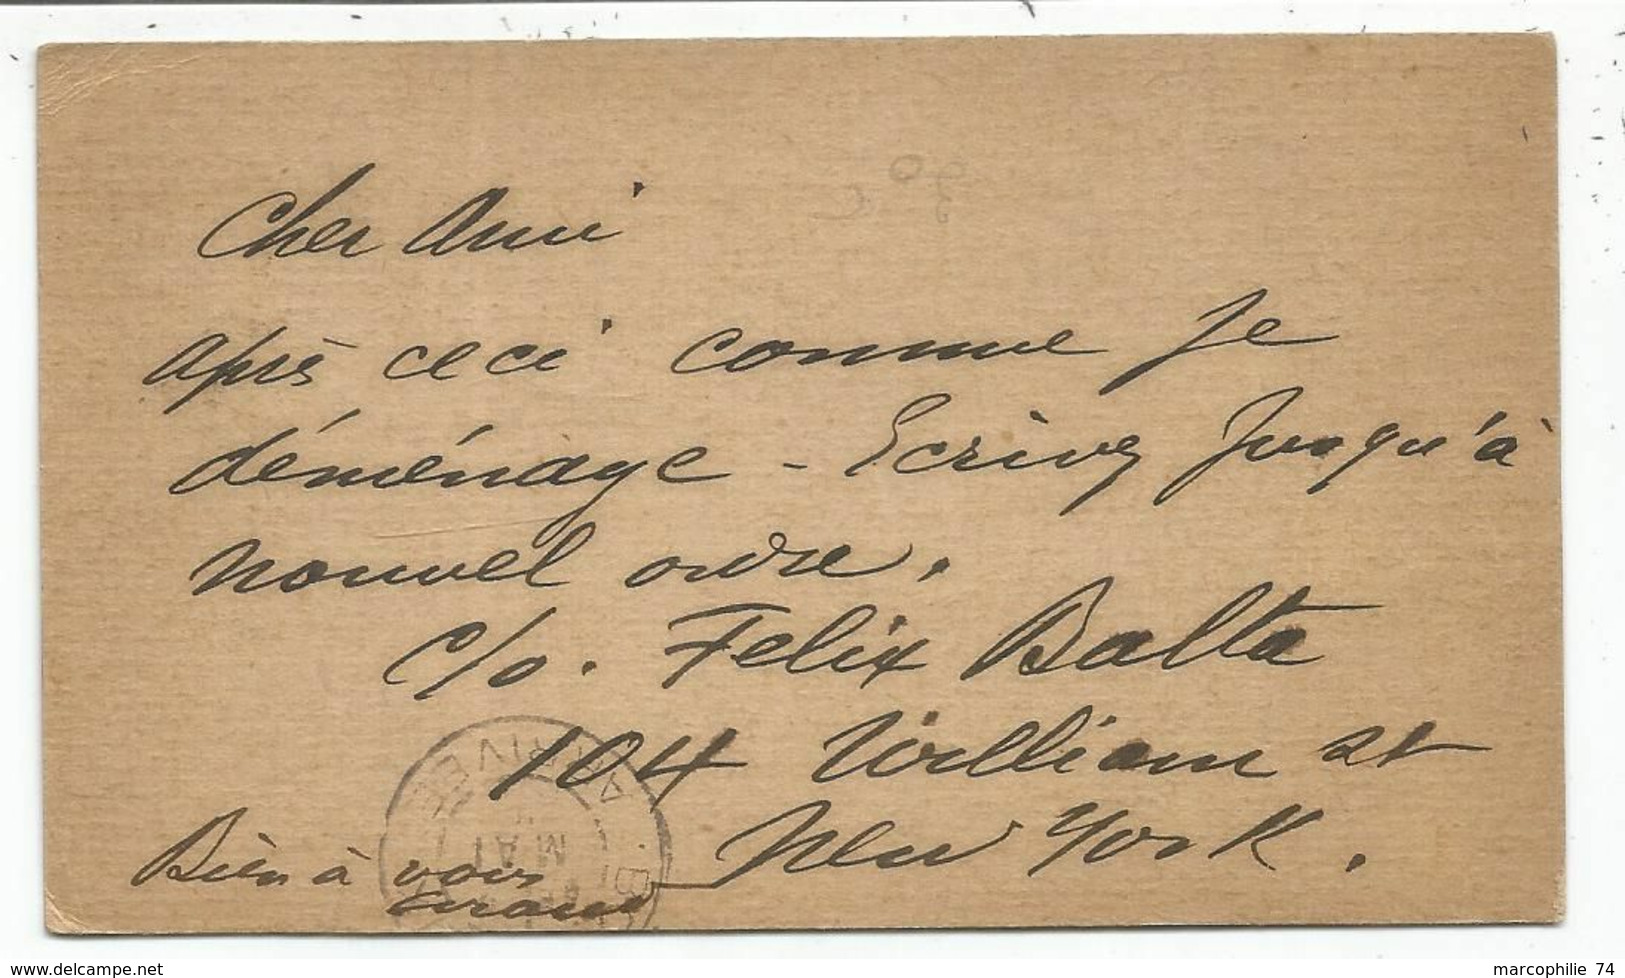 Cher Ami
après ceci comme je
déménage - Ecrivez jusqu'à
nouvel ordre.
c/o. Felix Balta
104 William st
New York.
Bien à vous
ARRIVEE
MAI
www.delcampe.net
marcophilie 74